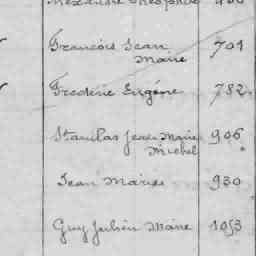 Alexandre Théophile
François Jean 701
Marie
Frédéric Eugène 782
Stanislas Jean Marie 906
Michel
Jean Marie 930
Guy Julien Marie 1053